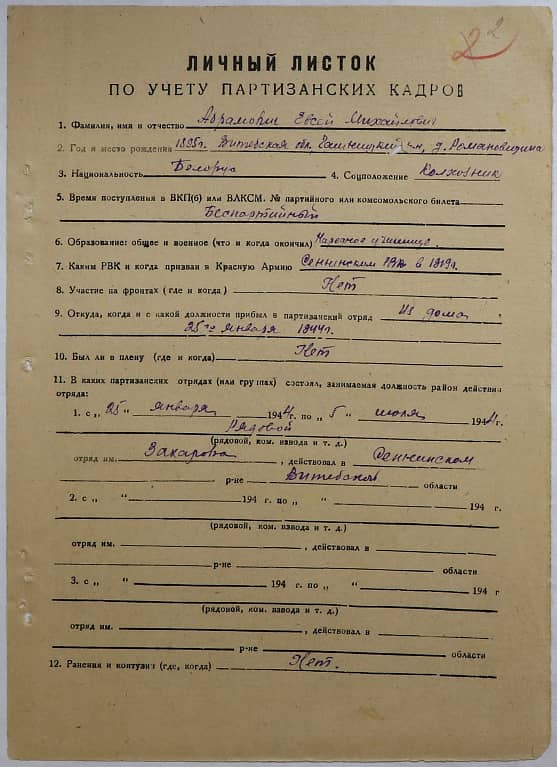 2
ЛИЧНЫЙ ЛИСТОК
ПО УЧЕТУ ПАРТИЗАНСКИХ КАДРОВ
1. Фамилия, имя и отчество Абрамович Евсей Михайлович
2. Год и место рождения 1895г. Витебская обл. Чашникский р-н, д. Романовщина
3. Национальность Белорус 4. Соцположение Колхозник
5. Время поступления в ВКП(б) или ВЛКСМ. № партийного или комсомольского билета
Беспартийный
6. Образование: общее и военное (что и когда окончил) Народное училище.
7. Каким РВК и когда призван в Красную Армию Сеннинском РВК в 1919г.
8. Участие на фронтах (где и когда) Нет
9. Откуда, когда и с какой должности прибыл в партизанский отряд из дома
25го января 1944г.
10. Был ли в плену (где и когда) Нет
11. В каких партизанских отрядах (или группах) состоял, занимаемая должность район действия
отряда:
1. с „ 25 “ января 1944г. по „ 5 “ июля 1944г.
Рядовой
(рядовой, ком. взвода и т. д.)
отряд им. Захарова, действовал в Сеннинском
р-не Витебской области
2. с „ “ 194 г. по „ “ 194 г.
(рядовой, ком. взвода и т. д.)
отряд им. , действовал в
р-не области
3. с „ “ 194 г. по „ “ 194 г
(рядовой, ком. взвода и т. д.)
отряд им. , действовал в
р-не области
12. Ранения и контузии (где, когда) Нет.